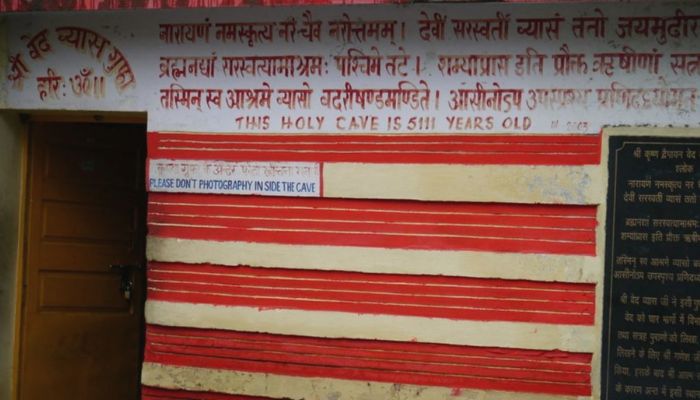 श्री वेद व्यास गुफा
हरिः ॐ॥
नारायणं नमस्कृत्य नरं चैव नरोत्तमम्। देवीं सरस्वतीं व्यासं ततो जयमुदीर
ब्रह्मनद्यां सरस्वत्यामाश्रमः पश्चिमे तटे। शम्याप्रास इति प्रोक्त ऋषीणां सत्र
तस्मिन् स्व आश्रमे व्यासो वदरीषण्डमण्डिते। आसीनोऽप उपस्पृश्य प्रणिदध्यौ
THIS HOLY CAVE IS 5111 YEARS OLD
PLEASE DON'T PHOTOGRAPHY IN SIDE THE CAVE
श्री कृष्ण द्वैपायन वेद
श्लोक
नारायणं नमस्कृत्य नरं
देवीं सरस्वतीं व्यासं ततो
ब्रह्मनद्यां सरस्वत्यामाश्रमः
शम्याप्रास इति प्रोक्त
तस्मिन् स्व आश्रमे व्यासो
आसीनोऽप उपस्पृश्य
श्री वेद व्यास जी ने इसी
वेद को चार भागों में
तथा सत्रह पुराणों को लिखा
लिखने के लिए श्री गणेश
किया, इसके बाद भी आत्म
के कारण अन्त में इसी